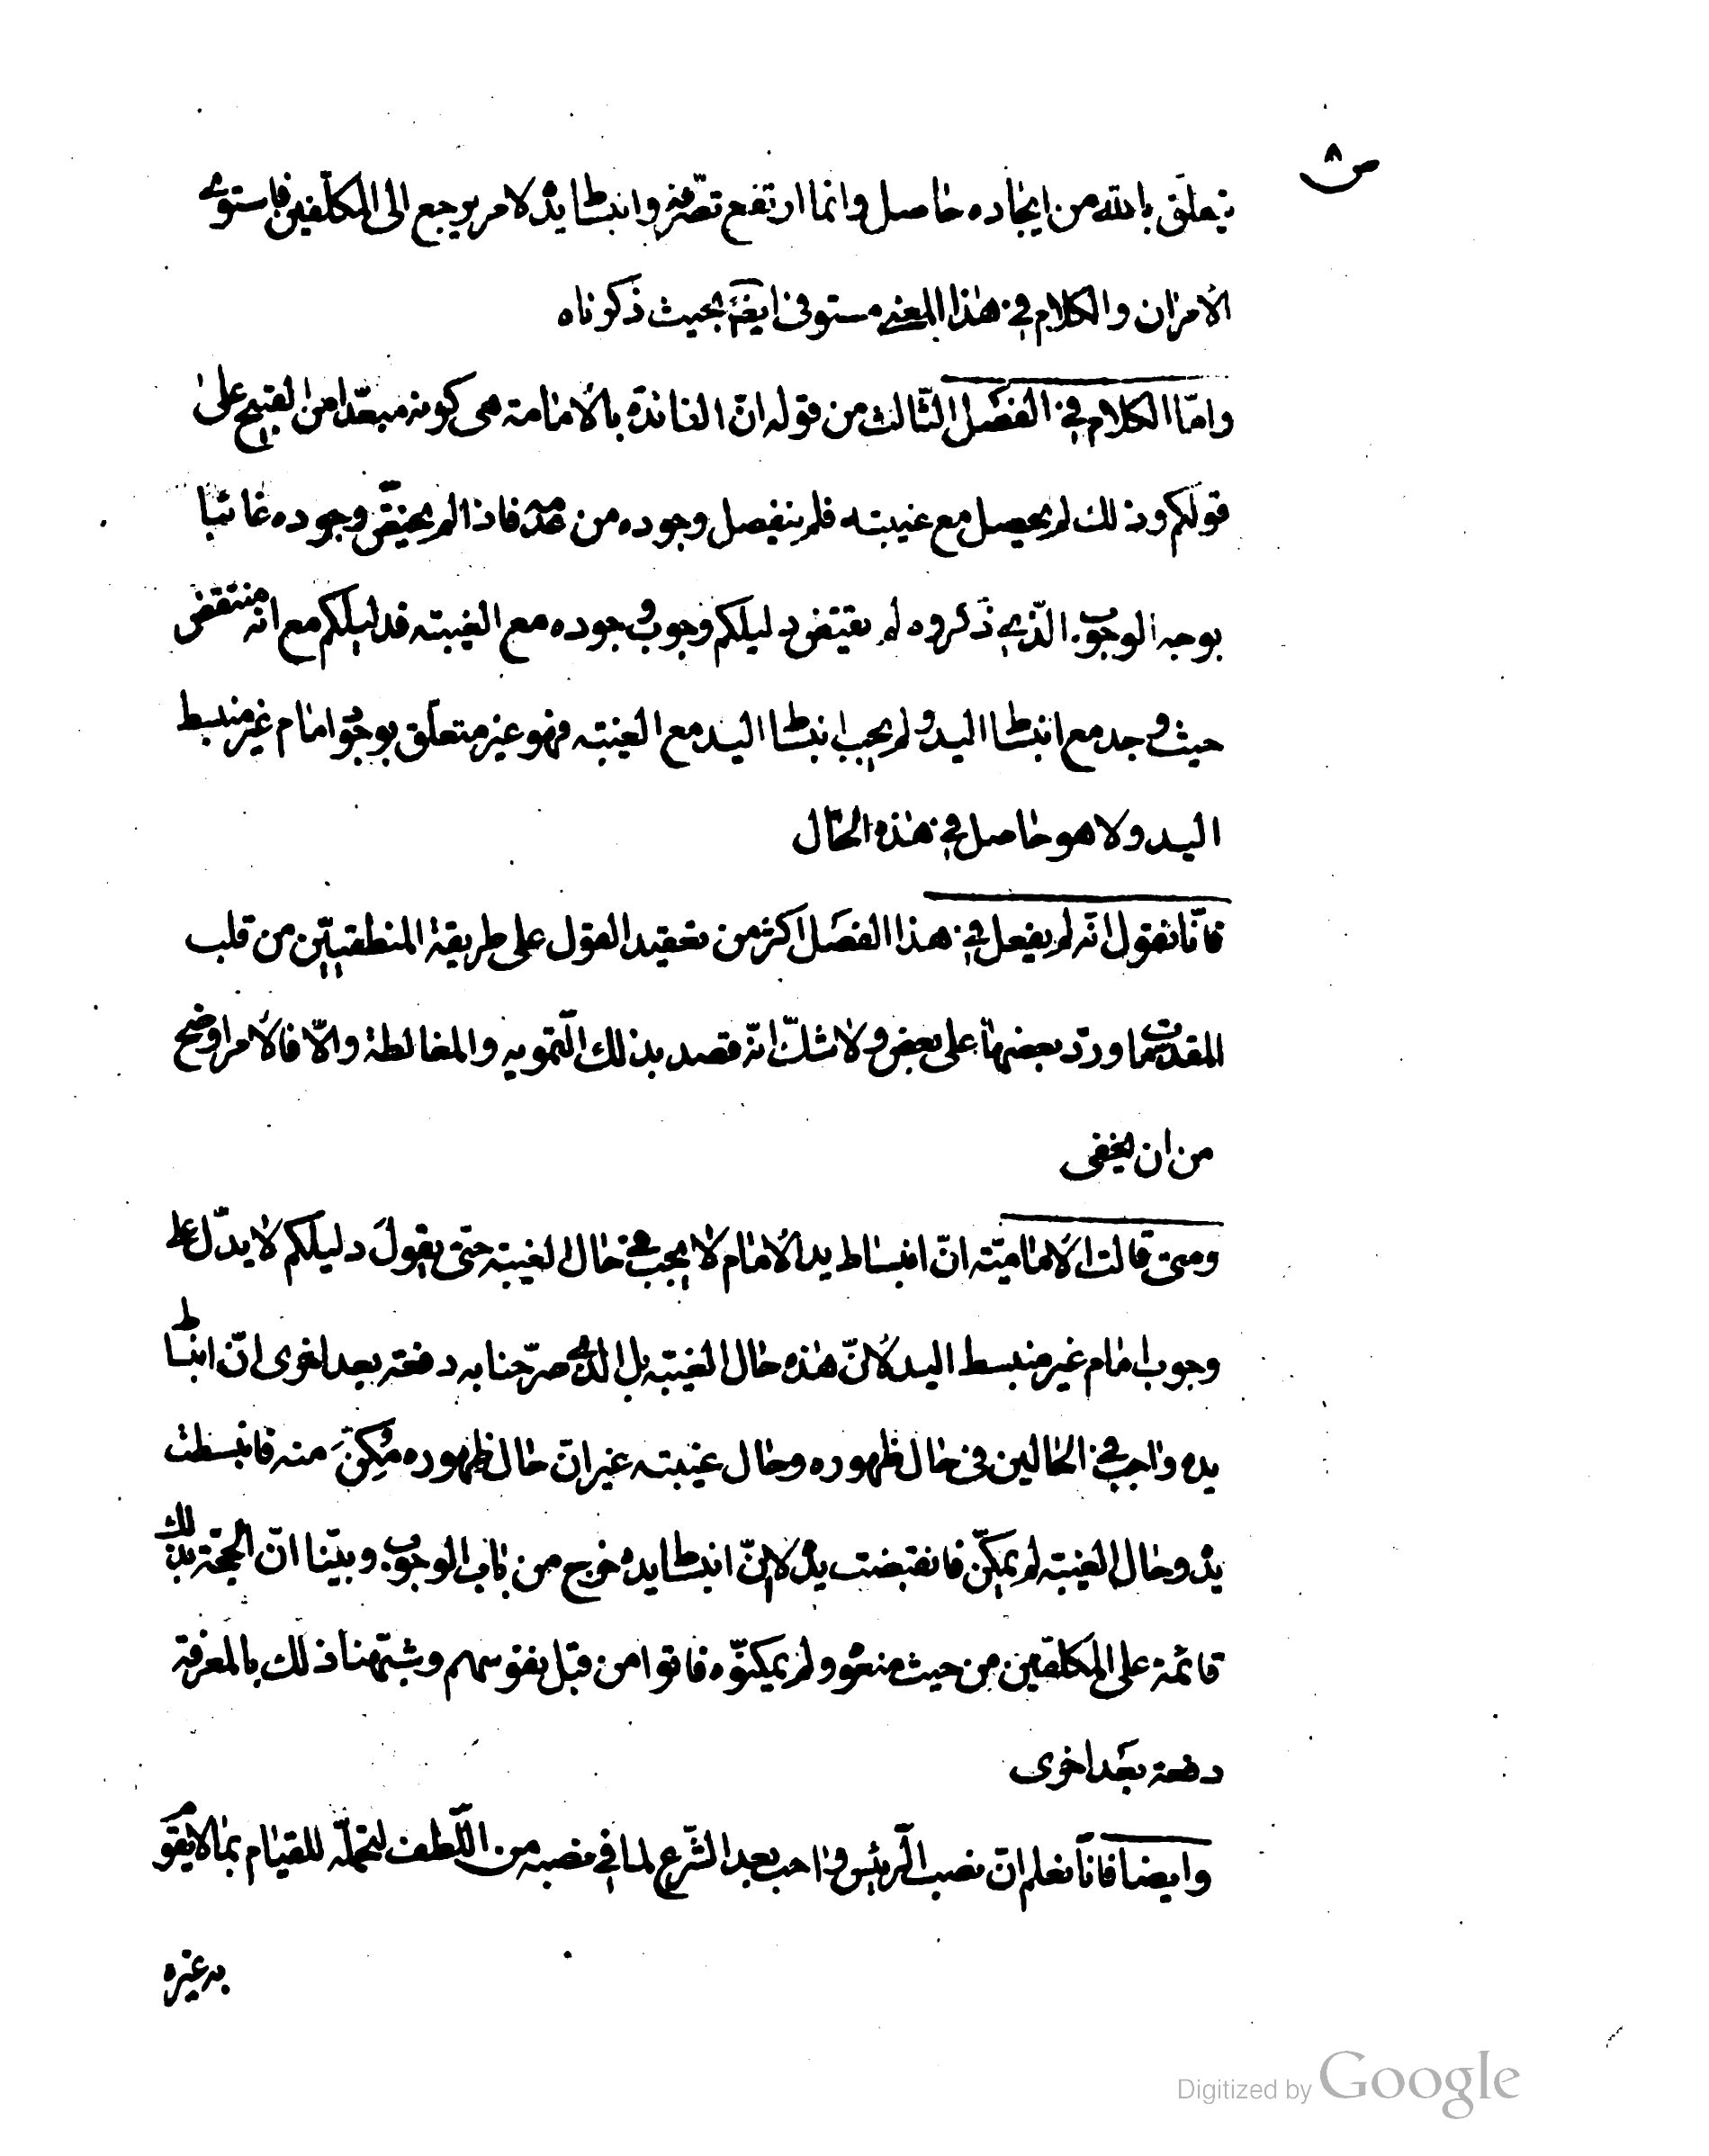 يتعلق بالله من ايجاده حاصل وانما ارتفع تصرفه وانبساط يده لامر يرجع الى المكلفين فاستوى
الأمران والكلام في هذا المعنى مستوفى ايضم بحيث ذكرناه
وامّا الكلام في الفصل الثالث من قوله انّ الفائدة بالأمامة هى كونه مبعّدا من القبيح على
قولكم وذلك لم يحصل مع غيبته فلم ينفصل وجوده من عدمه فاذا لم يختصّ وجوده غائبا
بوجه الوجوب الّذي ذكروه لم يقتض دليلكم وجوب وجوده مع الغيبته فدليلكم مع انّه منتقض
حيث وجد مع انبساط اليد ولم يجب انبساط اليد مع الغيبته فهو غير متعلّق بوجود امام غير منبسط
اليد ولا هو حاصل في هذه الحال
فانّا نقول انّه لم يفعل في هذا الفصل اكثر من تعقيد القول على طريقة المنطقيّين من قلب
المقدمات وردّ بعضها على بعض ولا شكّ انّه قصد بذلك التّمويه والمغالطة والّا فالأمر اوضح
من ان يخفى
ومتى قالت الأماميّته انّ انبساط يد الأمام لا يجب في حال الغيبته حتى يقول دليلكم لا يدّل على
وجوب امام غير منبسط اليد لأنّ هذه حال الغيبته بل الذى صرّحنا به دفعته بعد اخرى انّ انبساط
يده واجب في الحالين في حال ظهوره وحال غيبته غير انّ حال ظهوره مُكِّنَ منه فانبسطت
يده وحال الغيبته لم يمكّن فانقبضت يده لا انّ انبساط يده خرج من باب الوجوب وبيّنا انّ الحجّة بذلك
قائمة على المكلّفين من حيث منعوه ولم يمكنّوه فاتوا من قبل نفوسهم وشبّهنا ذلك بالمعرفة
دفعة بعد اخرى
وايضا فانّا نعلم انّ نصب الرّئيس واجب بعد الشّرع لما في نصبه من اللّطف لتحمّله للقيام بما لا يقوم
به غيره
Digitized by Google